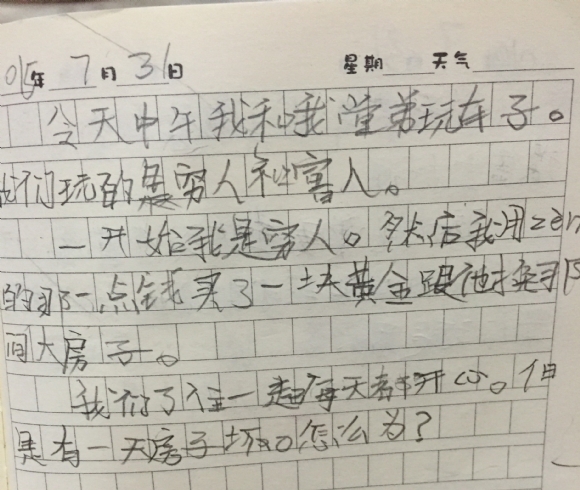 年 7月31日 星期 天气
今天中午我和我堂弟玩车子。
我们玩的是穷人和富人。
一开始我是穷人。然后我用
的那一点钱买了一块黄金跟他换了
间大房子。
我们了住一起每天都开心。但
是有一天房子坏。怎么办?